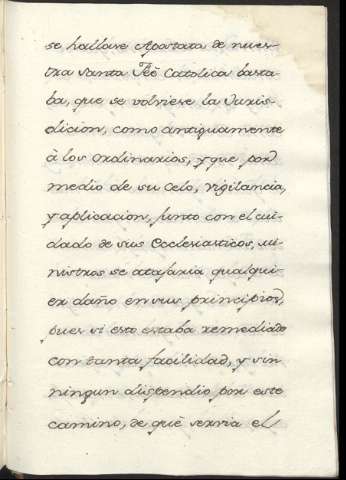 se hallase Apostata de nues-
tra Santa Feè Catolica basta-
ba, que se volviese la Juris-
diccion, como antiguamente
à los ordinarios, y que por
medio de su Celo, vigilancia,
y aplicacion, junto con el cui-
dado de sus Ecclesiasticos, mi-
nistros se atajaria qualqui-
er daño en sus principios,
pues si esto estaba remediado
con tanta facilidad, y sin
ningun dispendio por este
camino, de què servia el